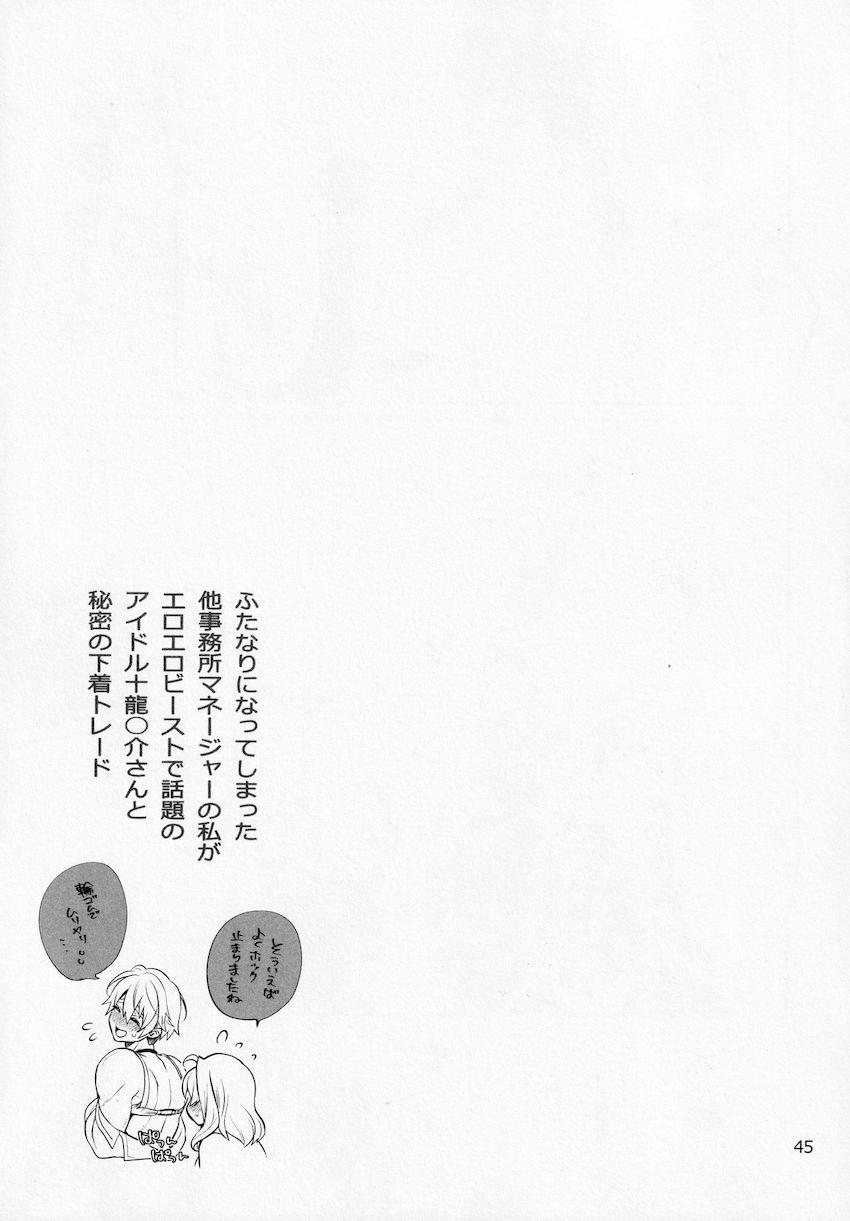 ふたなりになってしまった
他事務所マネージャーの私が
エロエロビーストで話題の
アイドル十龍〇介さんと
秘密の下着トレード
そういえば
よくホック
止まりましたね
輪ゴムで
ムリヤリ
…
ぱつ
ぱつ
45